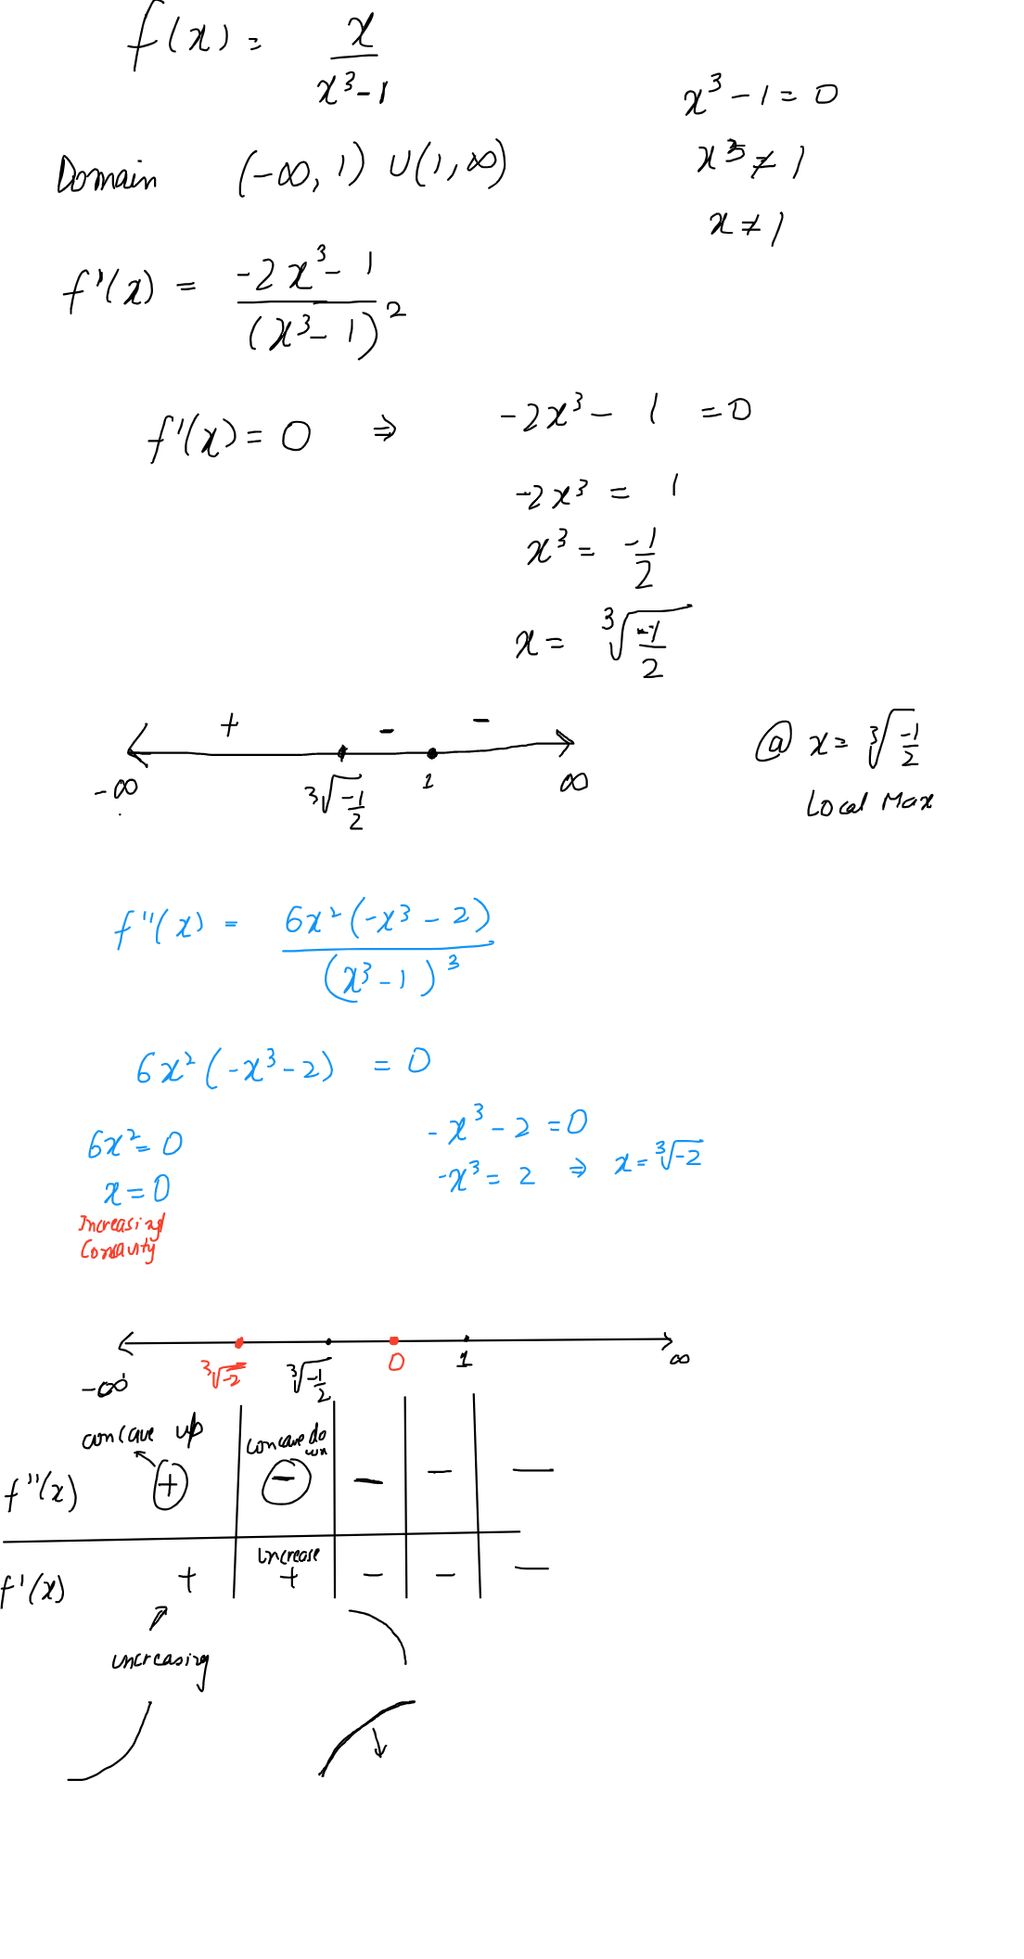 f(x) = x / (x³ - 1)
x³ - 1 = 0
x³ ≠ 1
x ≠ 1
Domain (-∞, 1) ∪ (1, ∞)
f'(x) = (-2x³ - 1) / (x³ - 1)²
f'(x) = 0 ⇒ -2x³ - 1 = 0
-2x³ = 1
x³ = -1/2
x = ∛(-1/2)
+ - -
-∞ ∛(-1/2) 1 ∞
@ x = ∛(-1/2)
Local Max
f''(x) = 6x²(-x³ - 2) / (x³ - 1)³
6x²(-x³ - 2) = 0
6x² = 0
x = 0
-x³ - 2 = 0
-x³ = 2 ⇒ x = ∛-2
Increasing
Concavity
-∞ ∛-2 ∛(-1/2) 0 1 ∞
concave up
concave down
f''(x) + - - - -
increase
f'(x) + + - - -
increasing